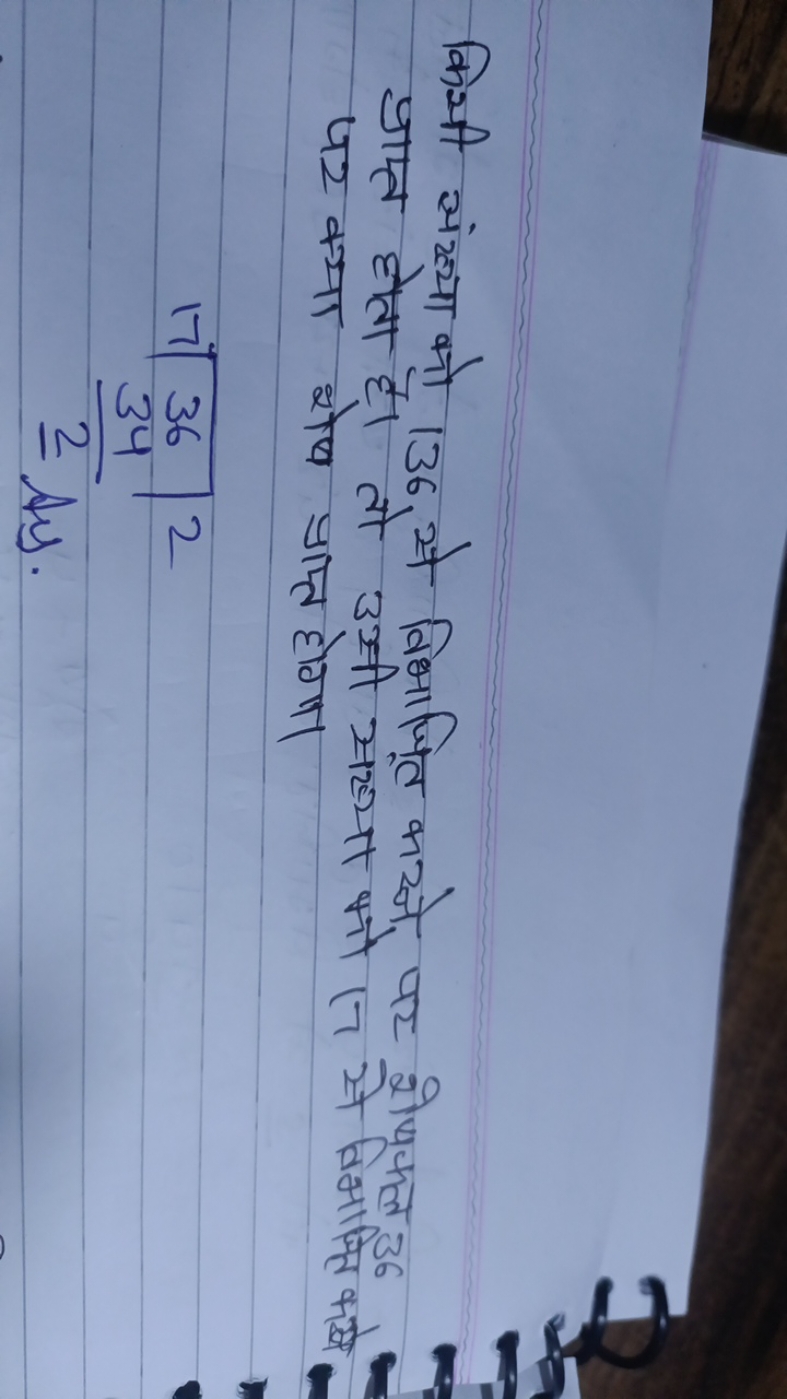 किसी संख्या को 136 से विभाजित करने पर शेषफल 36
प्राप्त होता है। तो उसी सख्या को 17 से विभाजित करने
पर क्या शेष प्राप्त होगा
17 36 2
34
2 Ans.